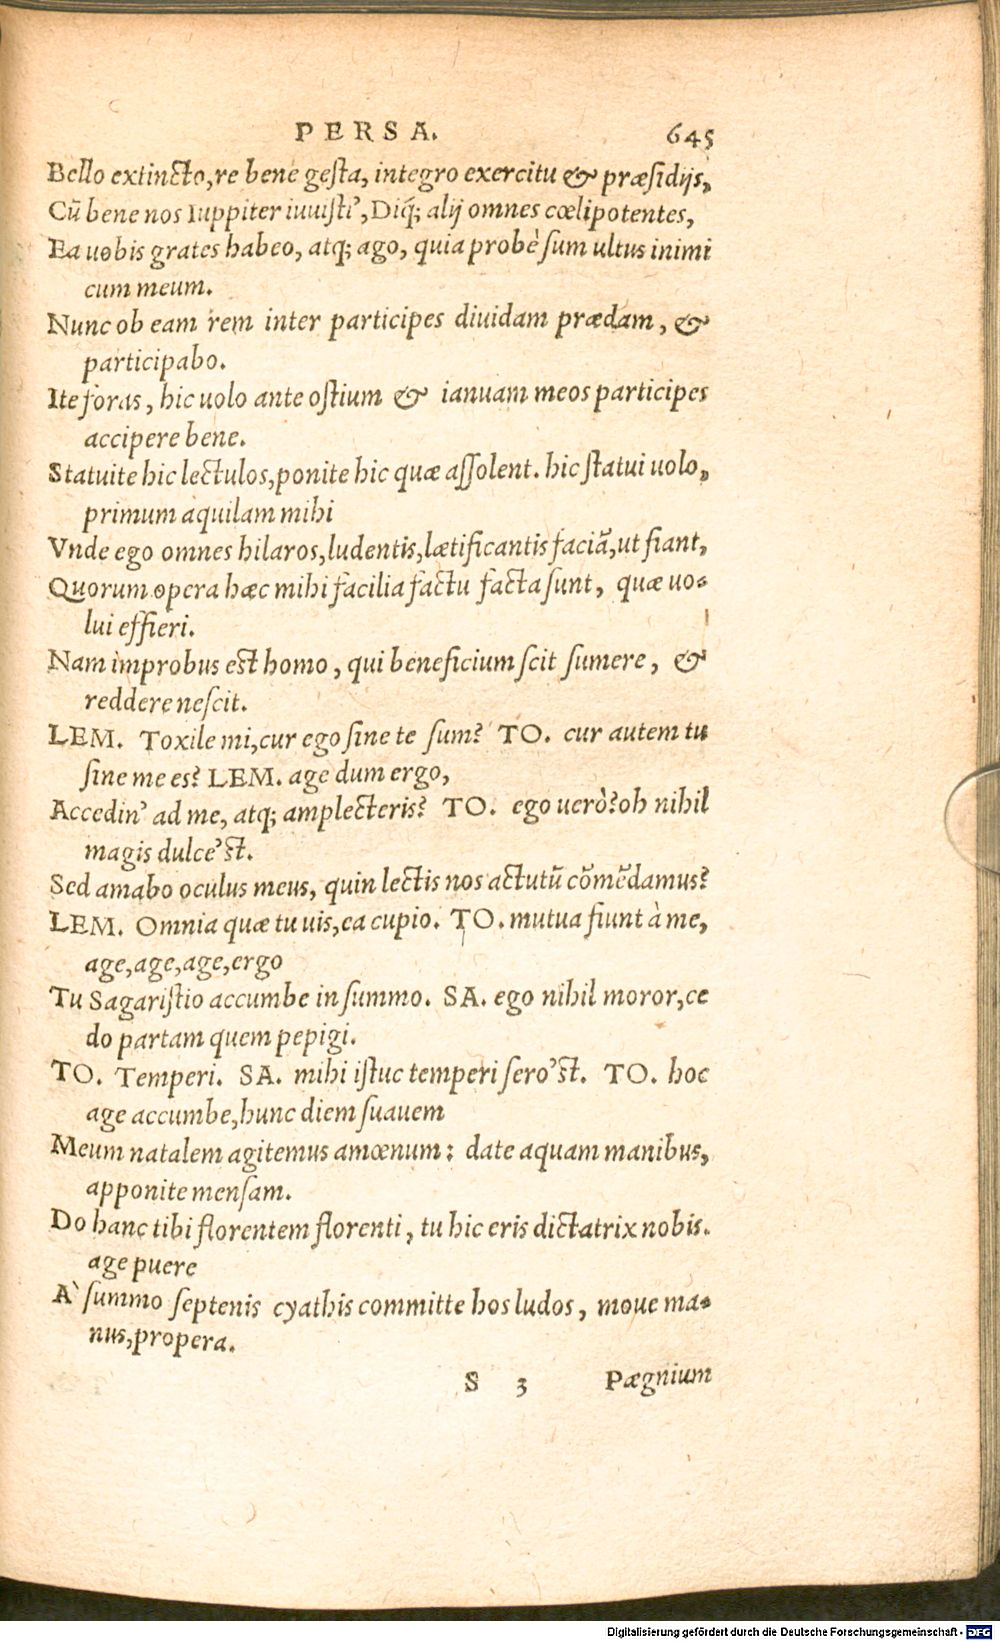 PERSA. 645
Bello extincto, re bene gesta, integro exercitu & præsidijs,
Cū bene nos Iuppiter iuuisti', Diq; alij omnes cœlipotentes,
Ea uobis grates habeo, atq; ago, quia probè sum ultus inimi
cum meum.
Nunc ob eam rem inter participes diuidam prædam, &
participabo.
Ite foras, hic uolo ante ostium & ianuam meos participes
accipere bene.
Statuite hic lectulos, ponite hic quæ assolent. hic statui uolo,
primum aquilam mihi
Vnde ego omnes hilaros, ludentis, lætificantis faciā, ut fiant,
Quorum opera hæc mihi facilia factu facta sunt, quæ uo-
lui effieri.
Nam improbus est homo, qui beneficium scit sumere, &
reddere nescit.
LEM. Toxile mi, cur ego sine te sum? TO. cur autem tu
sine me es? LEM. age dum ergo,
Accedin' ad me, atq; amplecteris? TO. ego uerò? oh nihil
magis dulce'st.
Sed amabo oculus meus, quin lectis nos actutū cōmēdamus?
LEM. Omnia quæ tu uis, ea cupio. TO. mutua fiunt à me,
age, age, age, ergo
Tu Sagaristio accumbe in summo. SA. ego nihil moror, ce
do partam quem pepigi.
TO. Temperi. SA. mihi istuc temperi sero'st. TO. hoc
age accumbe, hunc diem suauem
Meum natalem agitemus amœnum: date aquam manibus,
apponite mensam.
Do hanc tibi florentem florenti, tu hic eris dictatrix nobis.
age puere
A' summo septenis cyathis committe hos ludos, moue ma-
nus, propera.
S 3 Pægnium
Digitalisierung gefördert durch die Deutsche Forschungsgemeinschaft - DFG